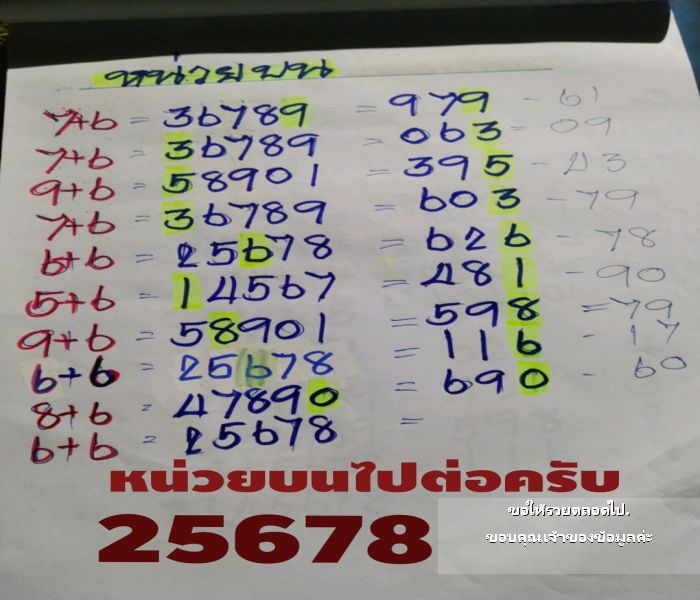 หน่วยบน
7+6 = 36789 = 979 - 61
7+6 = 36789 = 063 = 09
9+6 = 58901 = 395 - 43
7+6 = 36789 = 603 - 79
6+6 = 25678 = 626 - 78
5+6 = 14567 = 481 - 90
9+6 = 58901 = 598 = 79
6+6 = 25678 = 116 - 17
8+6 = 47890 = 690 - 60
6+6 = 25678 =
หน่วยบนไปต่อครับ
25678
ขอให้รวยตลอดไป.
ขอบคุณเจ้าของข้อมูลค่ะ